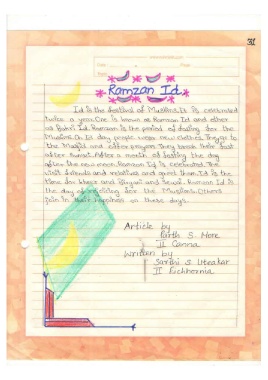 31
Ramzan Id
Id is the festival of Muslims. It is celebrated
twice a year. One is known as Ramzan Id and other
as Bakri Id. Ramzan is the period of fasting for the
Muslims. On Id day people wear new clothes. They go to
the Masjid and offer prayers. They break their fast
after sunset. After a month of fasting the day
after the moon Ramzan Id is celebrated. They
visit friends and relatives and greet them. Id is the
time for kheer and Biryani and Sewai. Ramzan Id is
the day of for the Muslims. Others
join in their happiness on these days.
Article by
Parth S. More
II Canna
Written by
Sarthi S Utekar
II Eichhornia